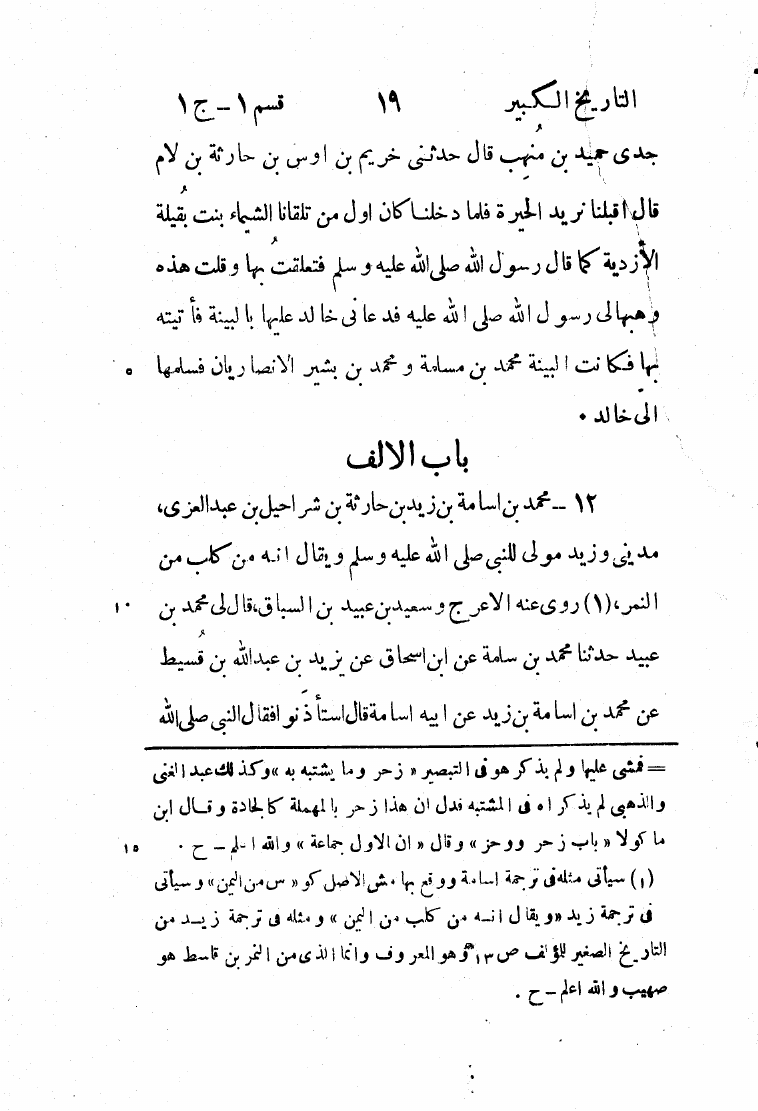 التاريخ الكبير ١٩ قسم ١ – ج ١
جدى حميد بن منهب قال حدثنى خريم بن اوس بن حارثة بن لام
قال اقبلنا نريد الحيرة فلما دخلنا كان اول من تلقانا الشيماء بنت بُقيلة
الأزدية كما قال رسول الله صلى الله عليه وسلم فتعلقتُ بها وقلت هذه
وهبها لى رسول الله صلى الله عليه فدعانى خالد عليها بالبينة فأتيته
بها فكانت البينة محمد بن مسلمة و محمد بن بشير الانصاريان فسلمها ٥
الى خالد ٠
باب الالف
١٢ – محمد بن اسامة بن زيد بن حارثة بن شراحيل بن عبد العزى،
مدينى وزيد مولى للنبى صلى الله عليه وسلم ويقال انه من كلب من
النمر، (١) روى عنه الاعرج وسعيد بن عبيد بن السباق، قال لى محمد بن ١٠
عبيد حدثنا محمد بن سلمة عن ابن اسحاق عن يزيد بن عبد الله بن قُسيط
عن محمد بن اسامة بن زيد عن ابيه اسامة قال استأذَنوا فقال النبى صلى الله
= فمشى عليها ولم يذكر هو فى التبصير « زحر وما يشتبه به » وكذلك عبد الغنى
والذهبى لم يذكراه فى المشتبه فدل ان هذا زحر بالمهملة كالجادة وقال ابن
ماكولا « باب زحر ووحز » وقال « ان الاول جماعة » والله اعلم – ح ٠ ١٥
(١) سيأتى مثله فى ترجمة اسامة ووقع بها مش الاصل كو « س من اليمن » وسيأتى
فى ترجمة زيد « ويقال انه من كلب من اليمن » و مثله فى ترجمة زيد من
التاريخ الصغير للؤلف ص ١٣ وهو المعروف وانما الذى من النمر بن قاسط هو
صهيب والله اعلم – ح ٠